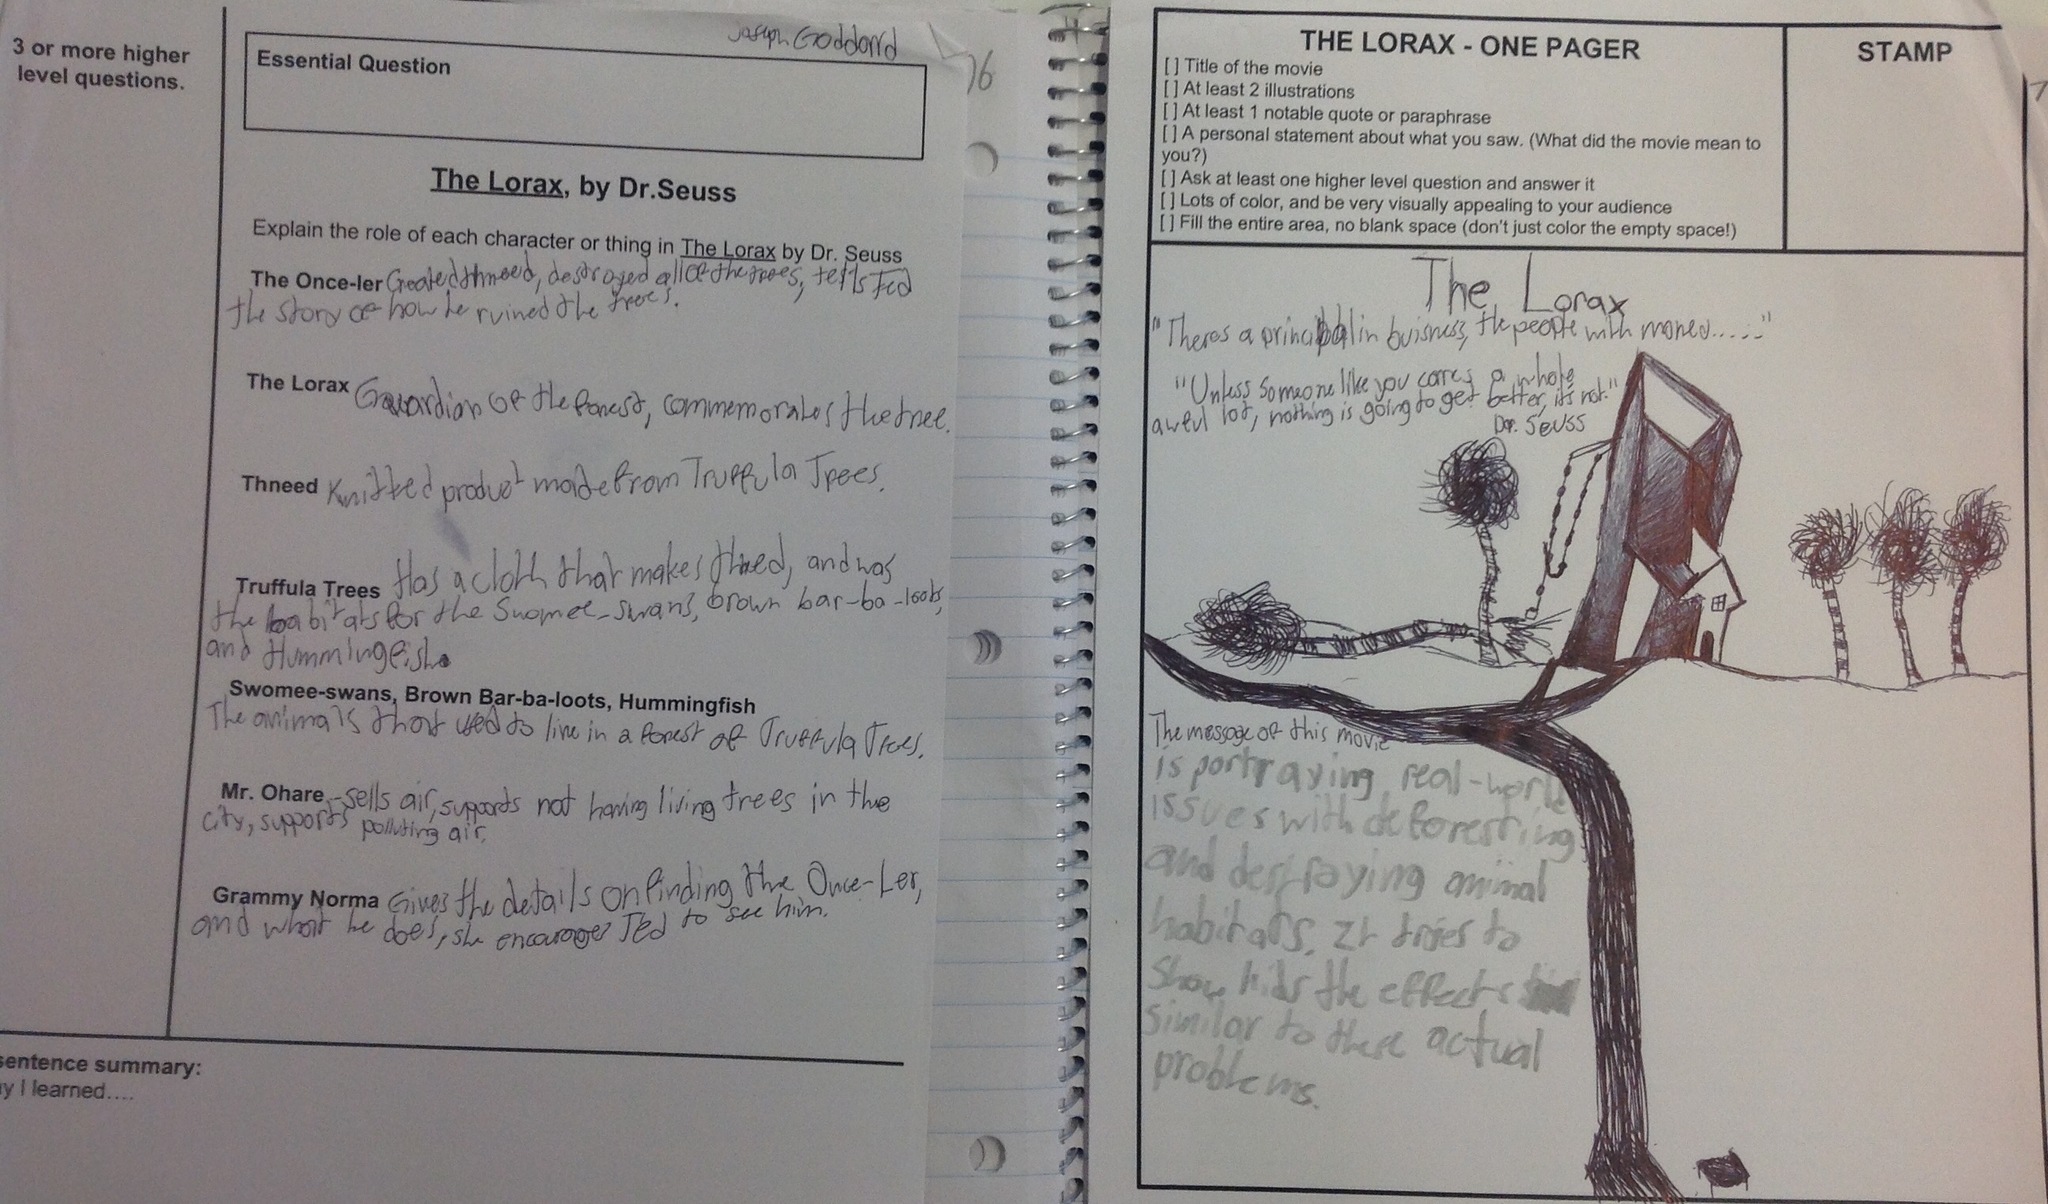 3 or more higher
level questions.
Joseph Goddard
Essential Question
The Lorax, by Dr.Seuss
Explain the role of each character or thing in The Lorax by Dr. Seuss
The Once-ler Created thneed, destroyed all of the trees, tells Ted
the story of how he ruined the trees.
The Lorax Guardian of the forest, commemorates the tree.
Thneed Knitted product made from Truffula Trees.
Truffula Trees Has a cloth that makes thned, and was
the habitats for the Swomee-swans, brown bar-ba-loots,
and Hummingfish.
Swomee-swans, Brown Bar-ba-loots, Hummingfish
The animals that used to live in a forest of Truffula Trees.
Mr. Ohare - sells air, supports not having living trees in the
city, supports polluting air.
Grammy Norma Gives the details on finding the Once-Ler,
and what he does, she encourages Ted to see him.
sentence summary:
I learned....
76
THE LORAX - ONE PAGER
[ ] Title of the movie
[ ] At least 2 illustrations
[ ] At least 1 notable quote or paraphrase
[ ] A personal statement about what you saw. (What did the movie mean to
you?)
[ ] Ask at least one higher level question and answer it
[ ] Lots of color, and be very visually appealing to your audience
[ ] Fill the entire area, no blank space (don't just color the empty space!)
STAMP
7
The Lorax
"Theres a principal in buisness, the people with money....."
"Unless someone like you cares a whole
awful lot, nothing is going to get better, it's not."
Dr. Seuss
The message of this movie
is portraying real-world
issues with deforesting
and destroying animal
habitats. It tries to
show kids the effects
similar to these actual
problems.